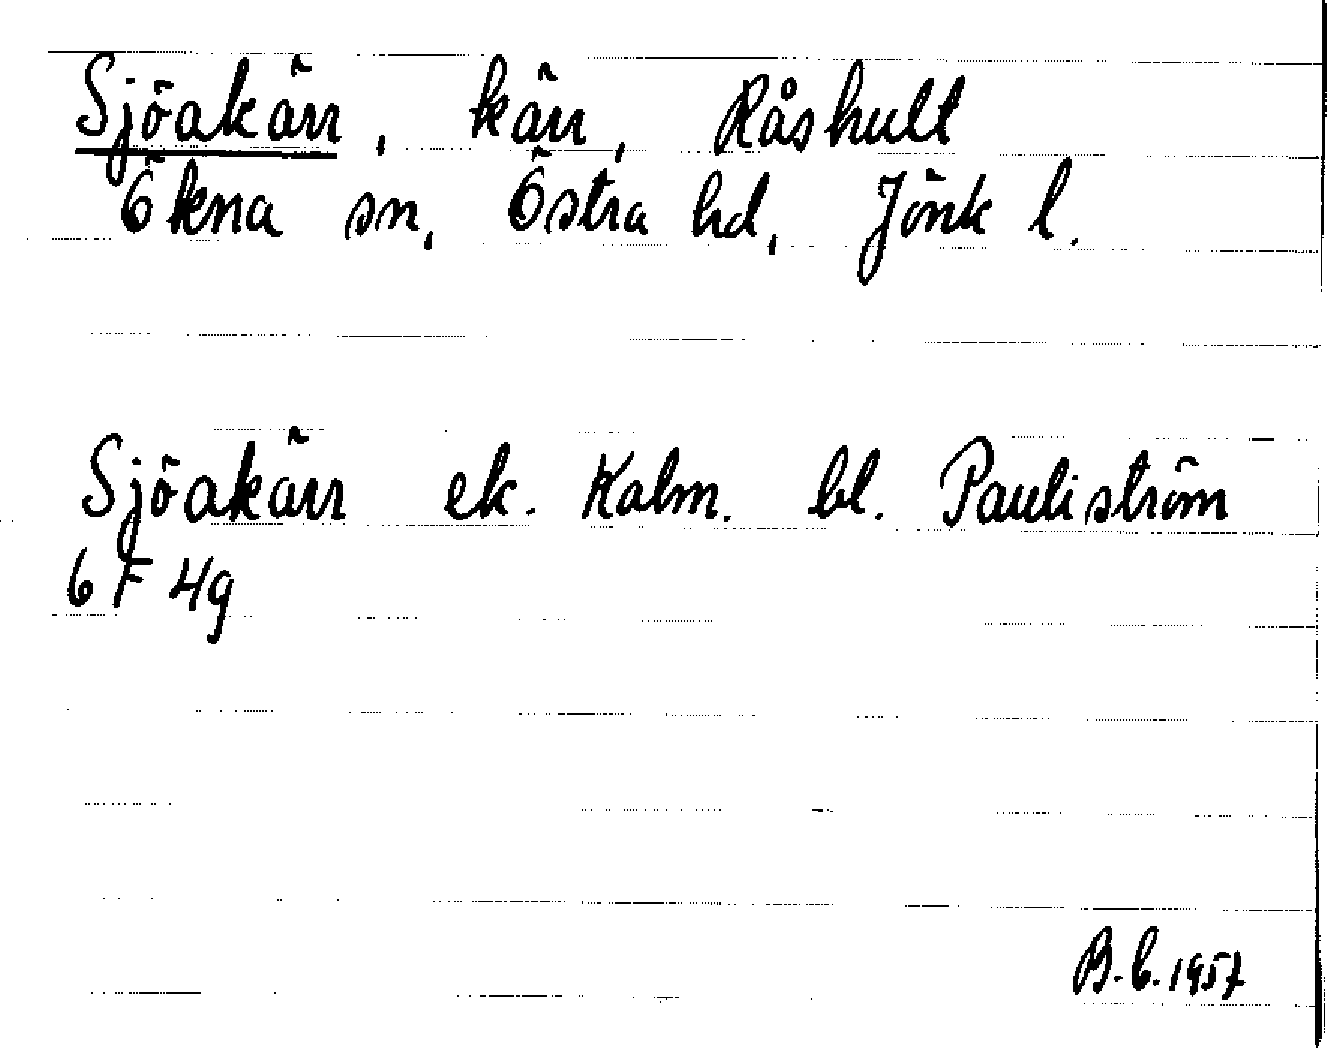 Sjöakärr, kärr, Råshult
Ökna sn, Östra hd, Jönk l.
Sjöakärr ek. Kalm. bl. Pauliström
6 F 4g
B.C. 1957